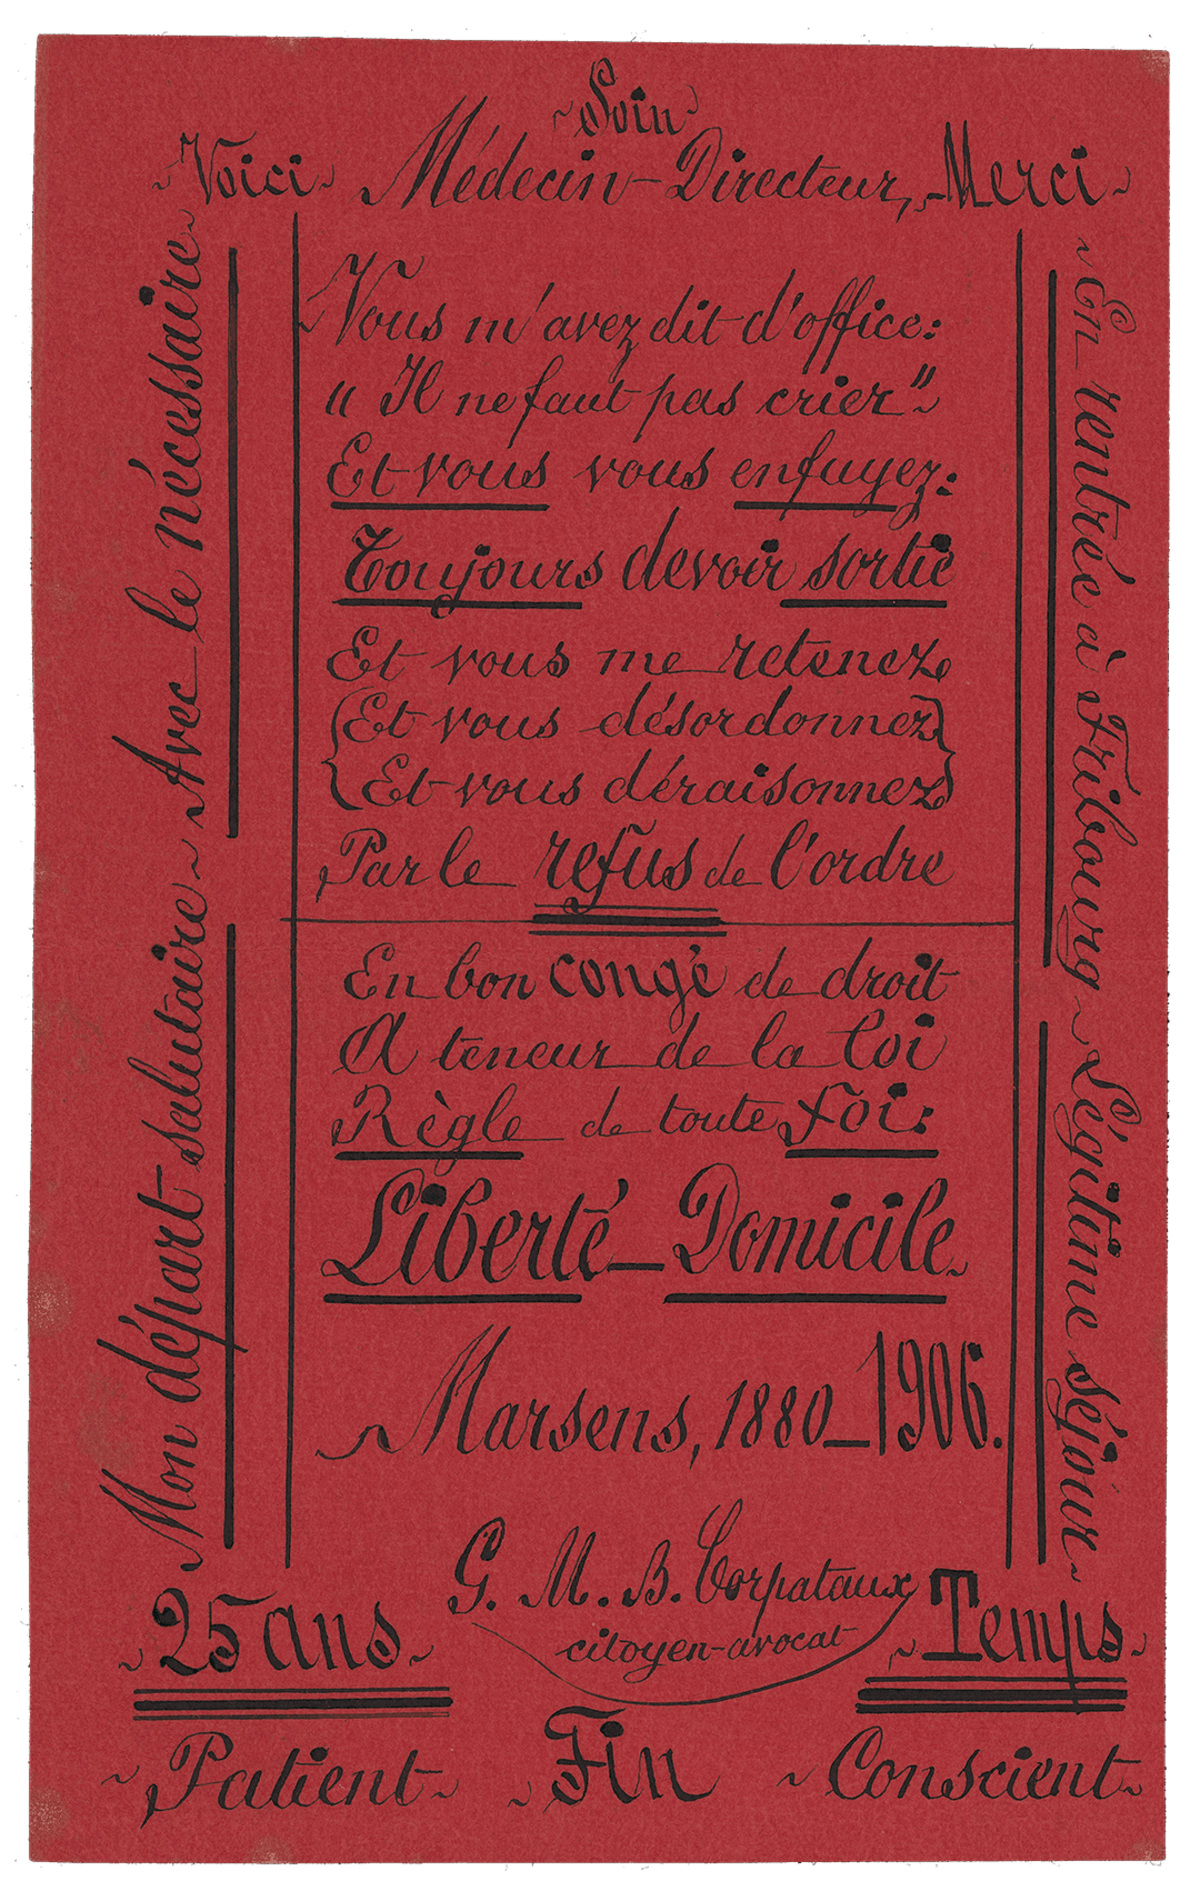 ~ Soin ~
~ Voici ~ Médecin-Directeur, ~ Merci ~
Vous m'avez dit d'office:
" Il ne faut pas crier" ~
Et vous vous enfuyez:
Toujours devoir sortir
Et vous me retenez
(Et vous désordonnez)
{Et vous déraisonnez}
Par le refus de l'ordre
En bon congé de droit
A teneur de la Loi
Règle de toute Foi:
Liberté – Domicile ~
~ Marsens, 1880 – 1906.
G. M. B. Corpataux
citoyen-avocat
Mon départ salutaire ~ Avec le nécessaire ~
~ En rentrée à Fribourg ~ Légitime séjour ~
~ 25 ans ~
~ Temps ~
~ Patient ~ ~ Fin ~ Conscient ~